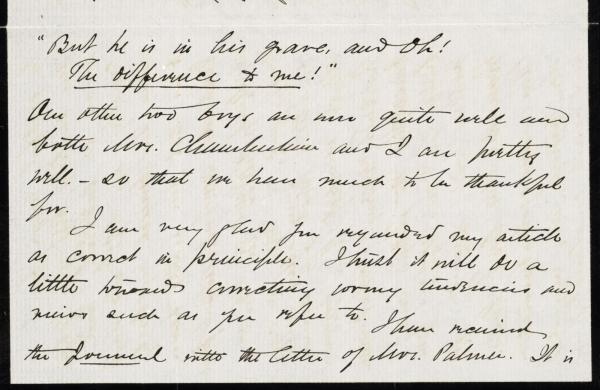 "But he is in his grave, and Oh!
The difference to me!"
Our other two boys are now quite well and
both Mrs. Chamberlain and I are pretty
well. - so that we have much to be thankful
for.
I am very glad you regarded my article
as correct in principle. I trust it will do a
little towards correcting wrong tendencies and
views such as you refer to. I have received
the Journal with the letter of Mrs. Palmer. It is